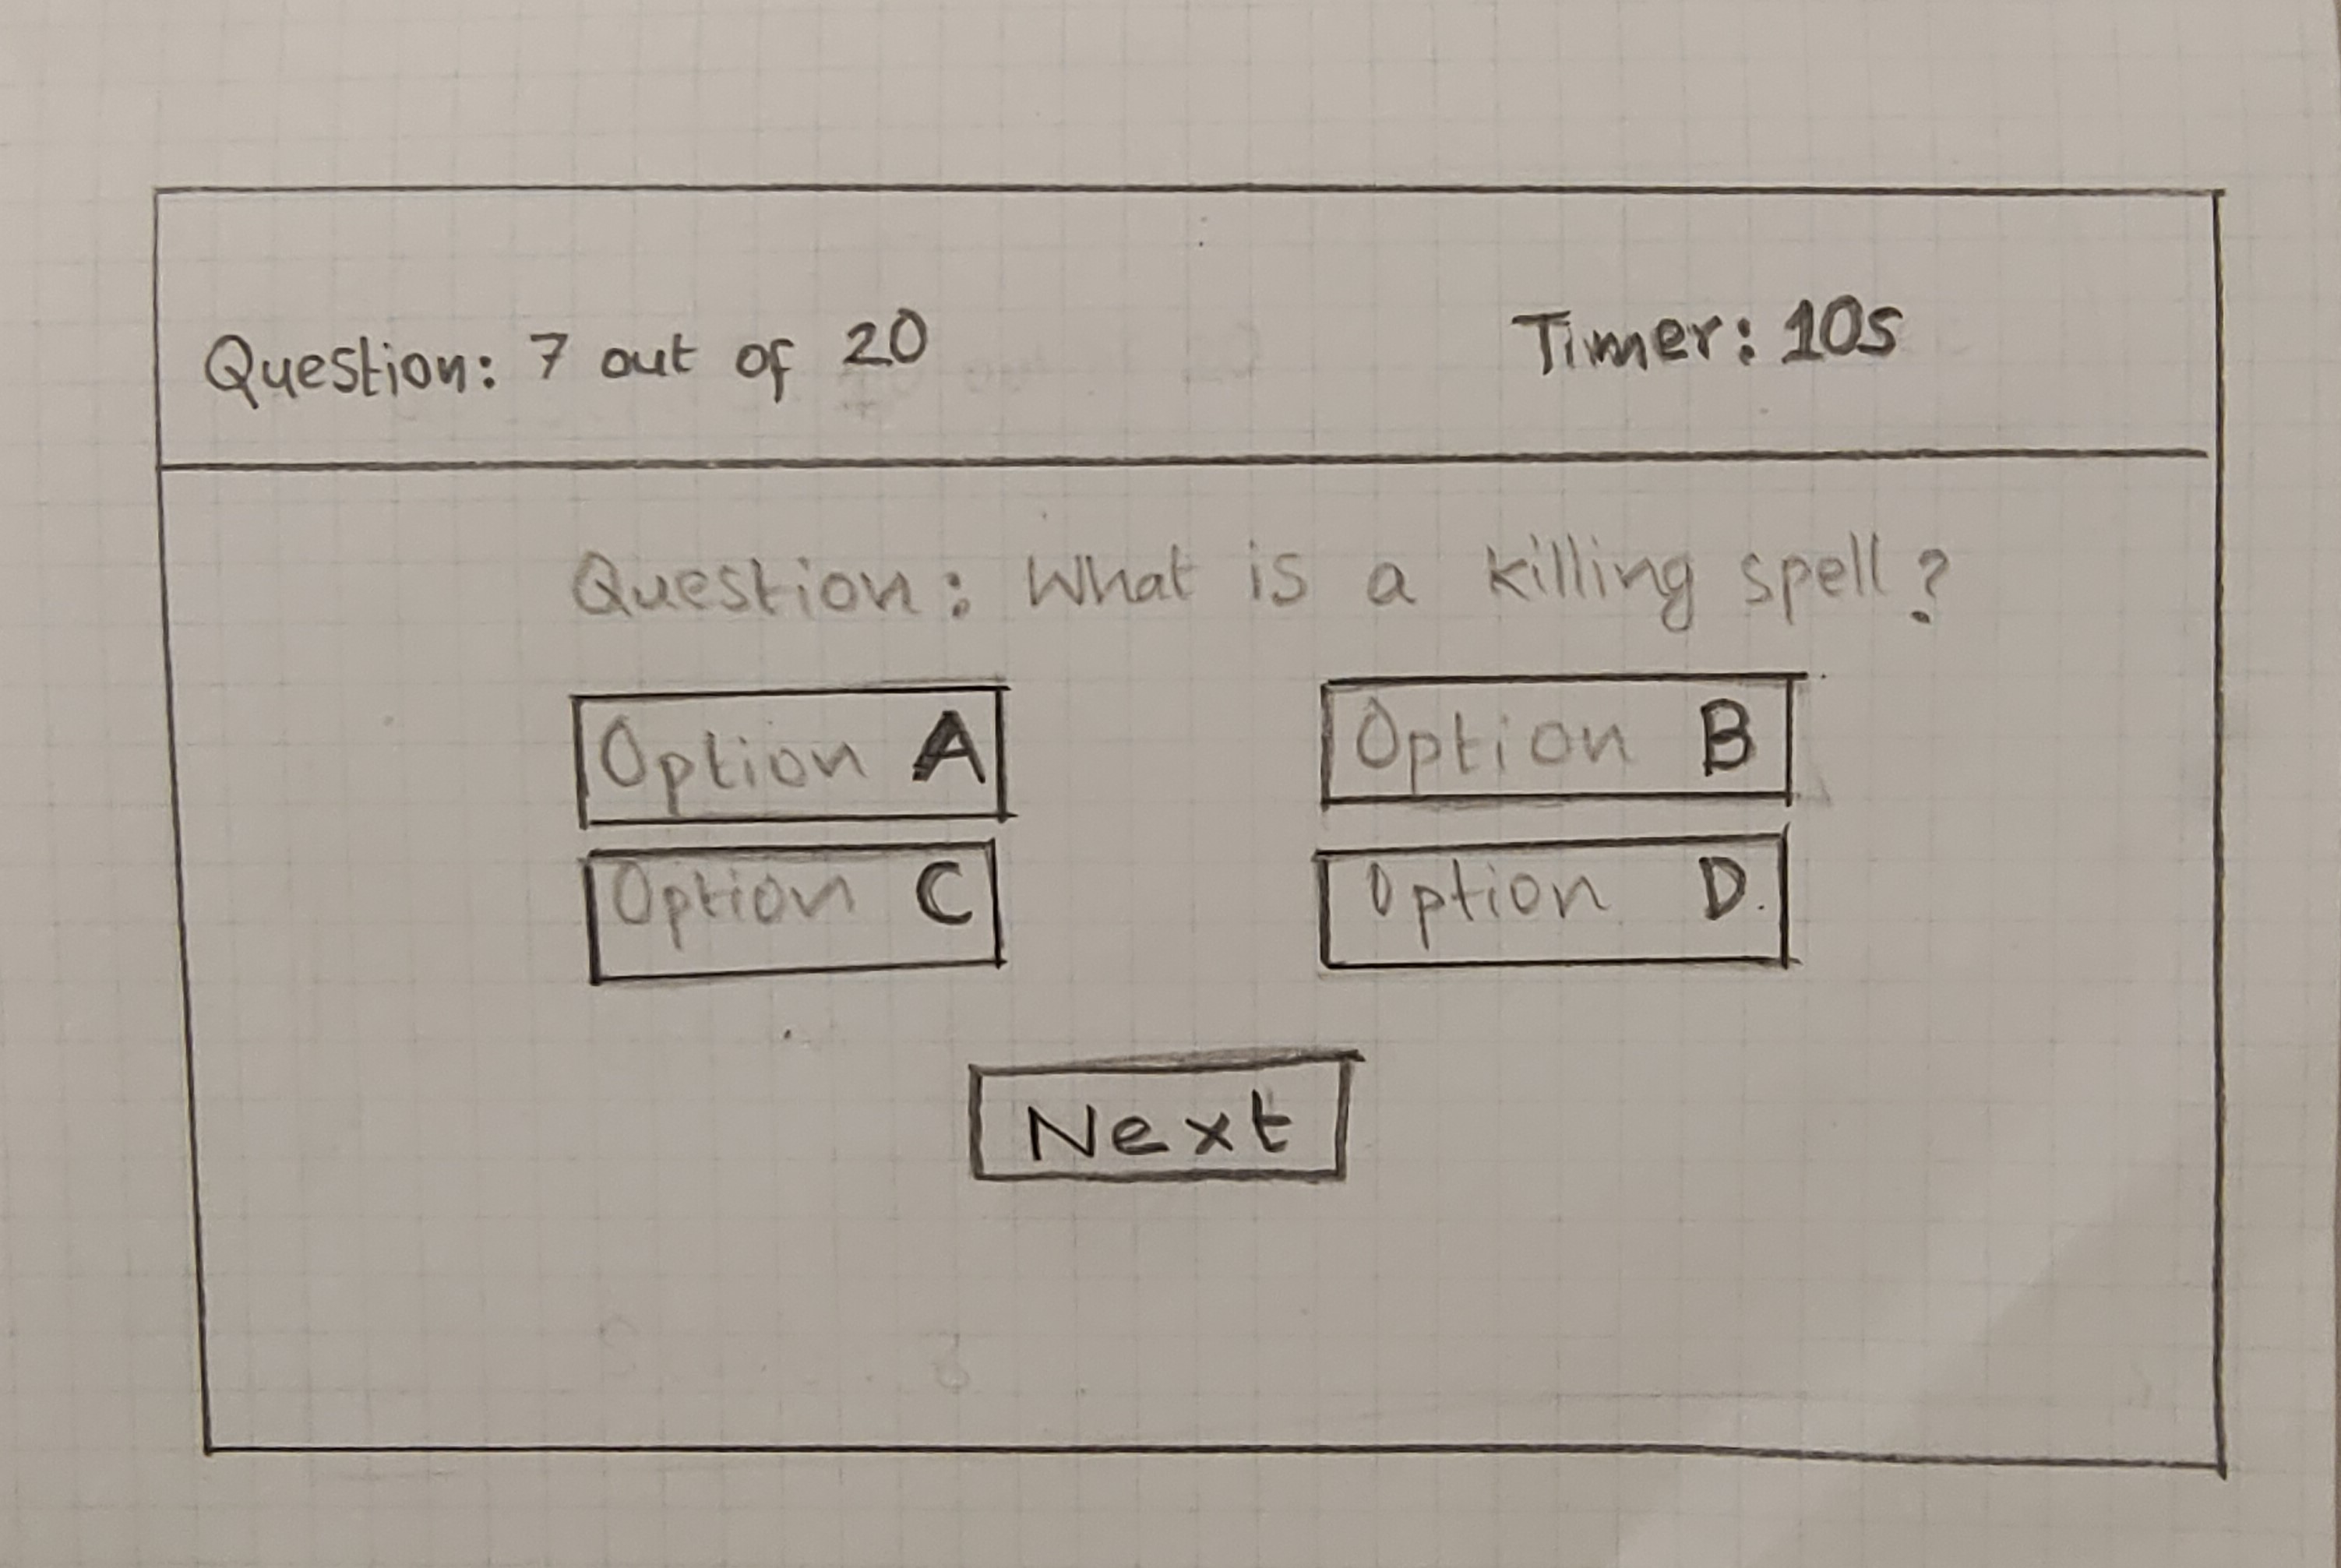 Question: 7 out of 20
Timer: 10s
Question: What is a killing spell?
Option A
Option B
Option C
Option D.
Next